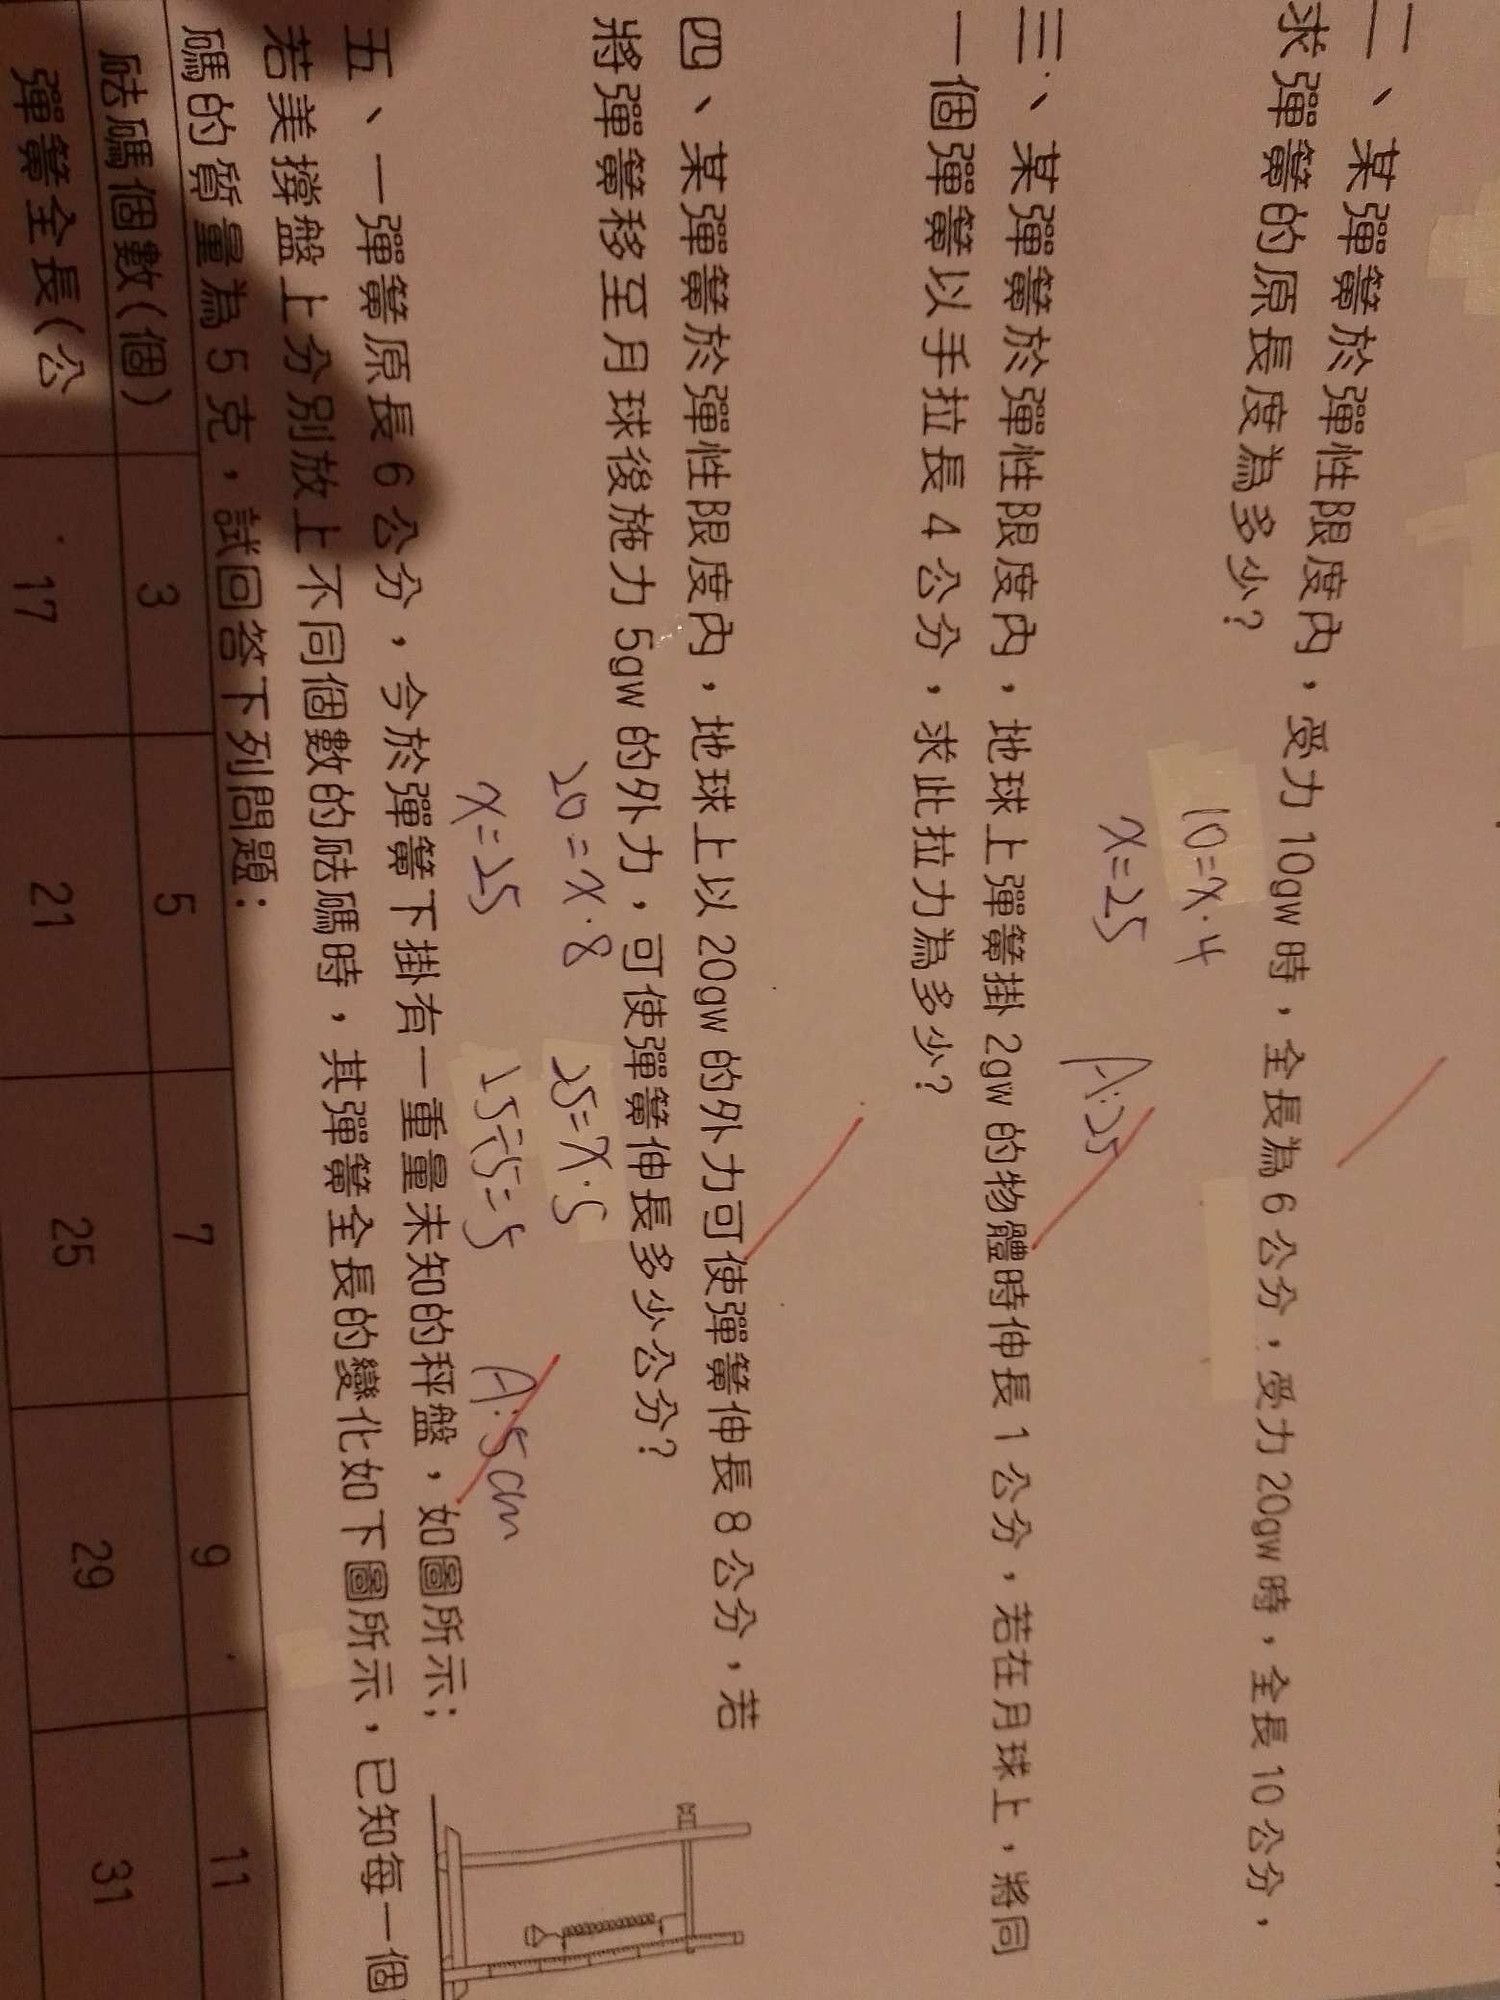 二、某彈簧於彈性限度內，受力 10gw 時，全長為 6 公分，受力 20gw 時，全長 10 公分，
求彈簧的原長度為多少？
10=x·4
x=25
A:25
三、某彈簧於彈性限度內，地球上彈簧掛 2gw 的物體時伸長 1 公分，若在月球上，將同
一個彈簧以手拉長 4 公分，求此拉力為多少？
四、某彈簧於彈性限度內，地球上以 20gw 的外力可使彈簧伸長 8 公分，若
將彈簧移至月球後施力 5gw 的外力，可使彈簧伸長多少公分？
20=x·8
x=25
25=x·5
25÷5=5
A:5cm
五、一彈簧原長 6 公分，今於彈簧下掛有一重量未知的秤盤，如圖所示；
若美撐盤上分別放上不同個數的砝碼時，其彈簧全長的變化如下圖所示，已知每一個
碼的質量為 5 克，試回答下列問題：
砝碼個數(個) 3 5 7 9 11
彈簧全長(公 17 21 25 29 31